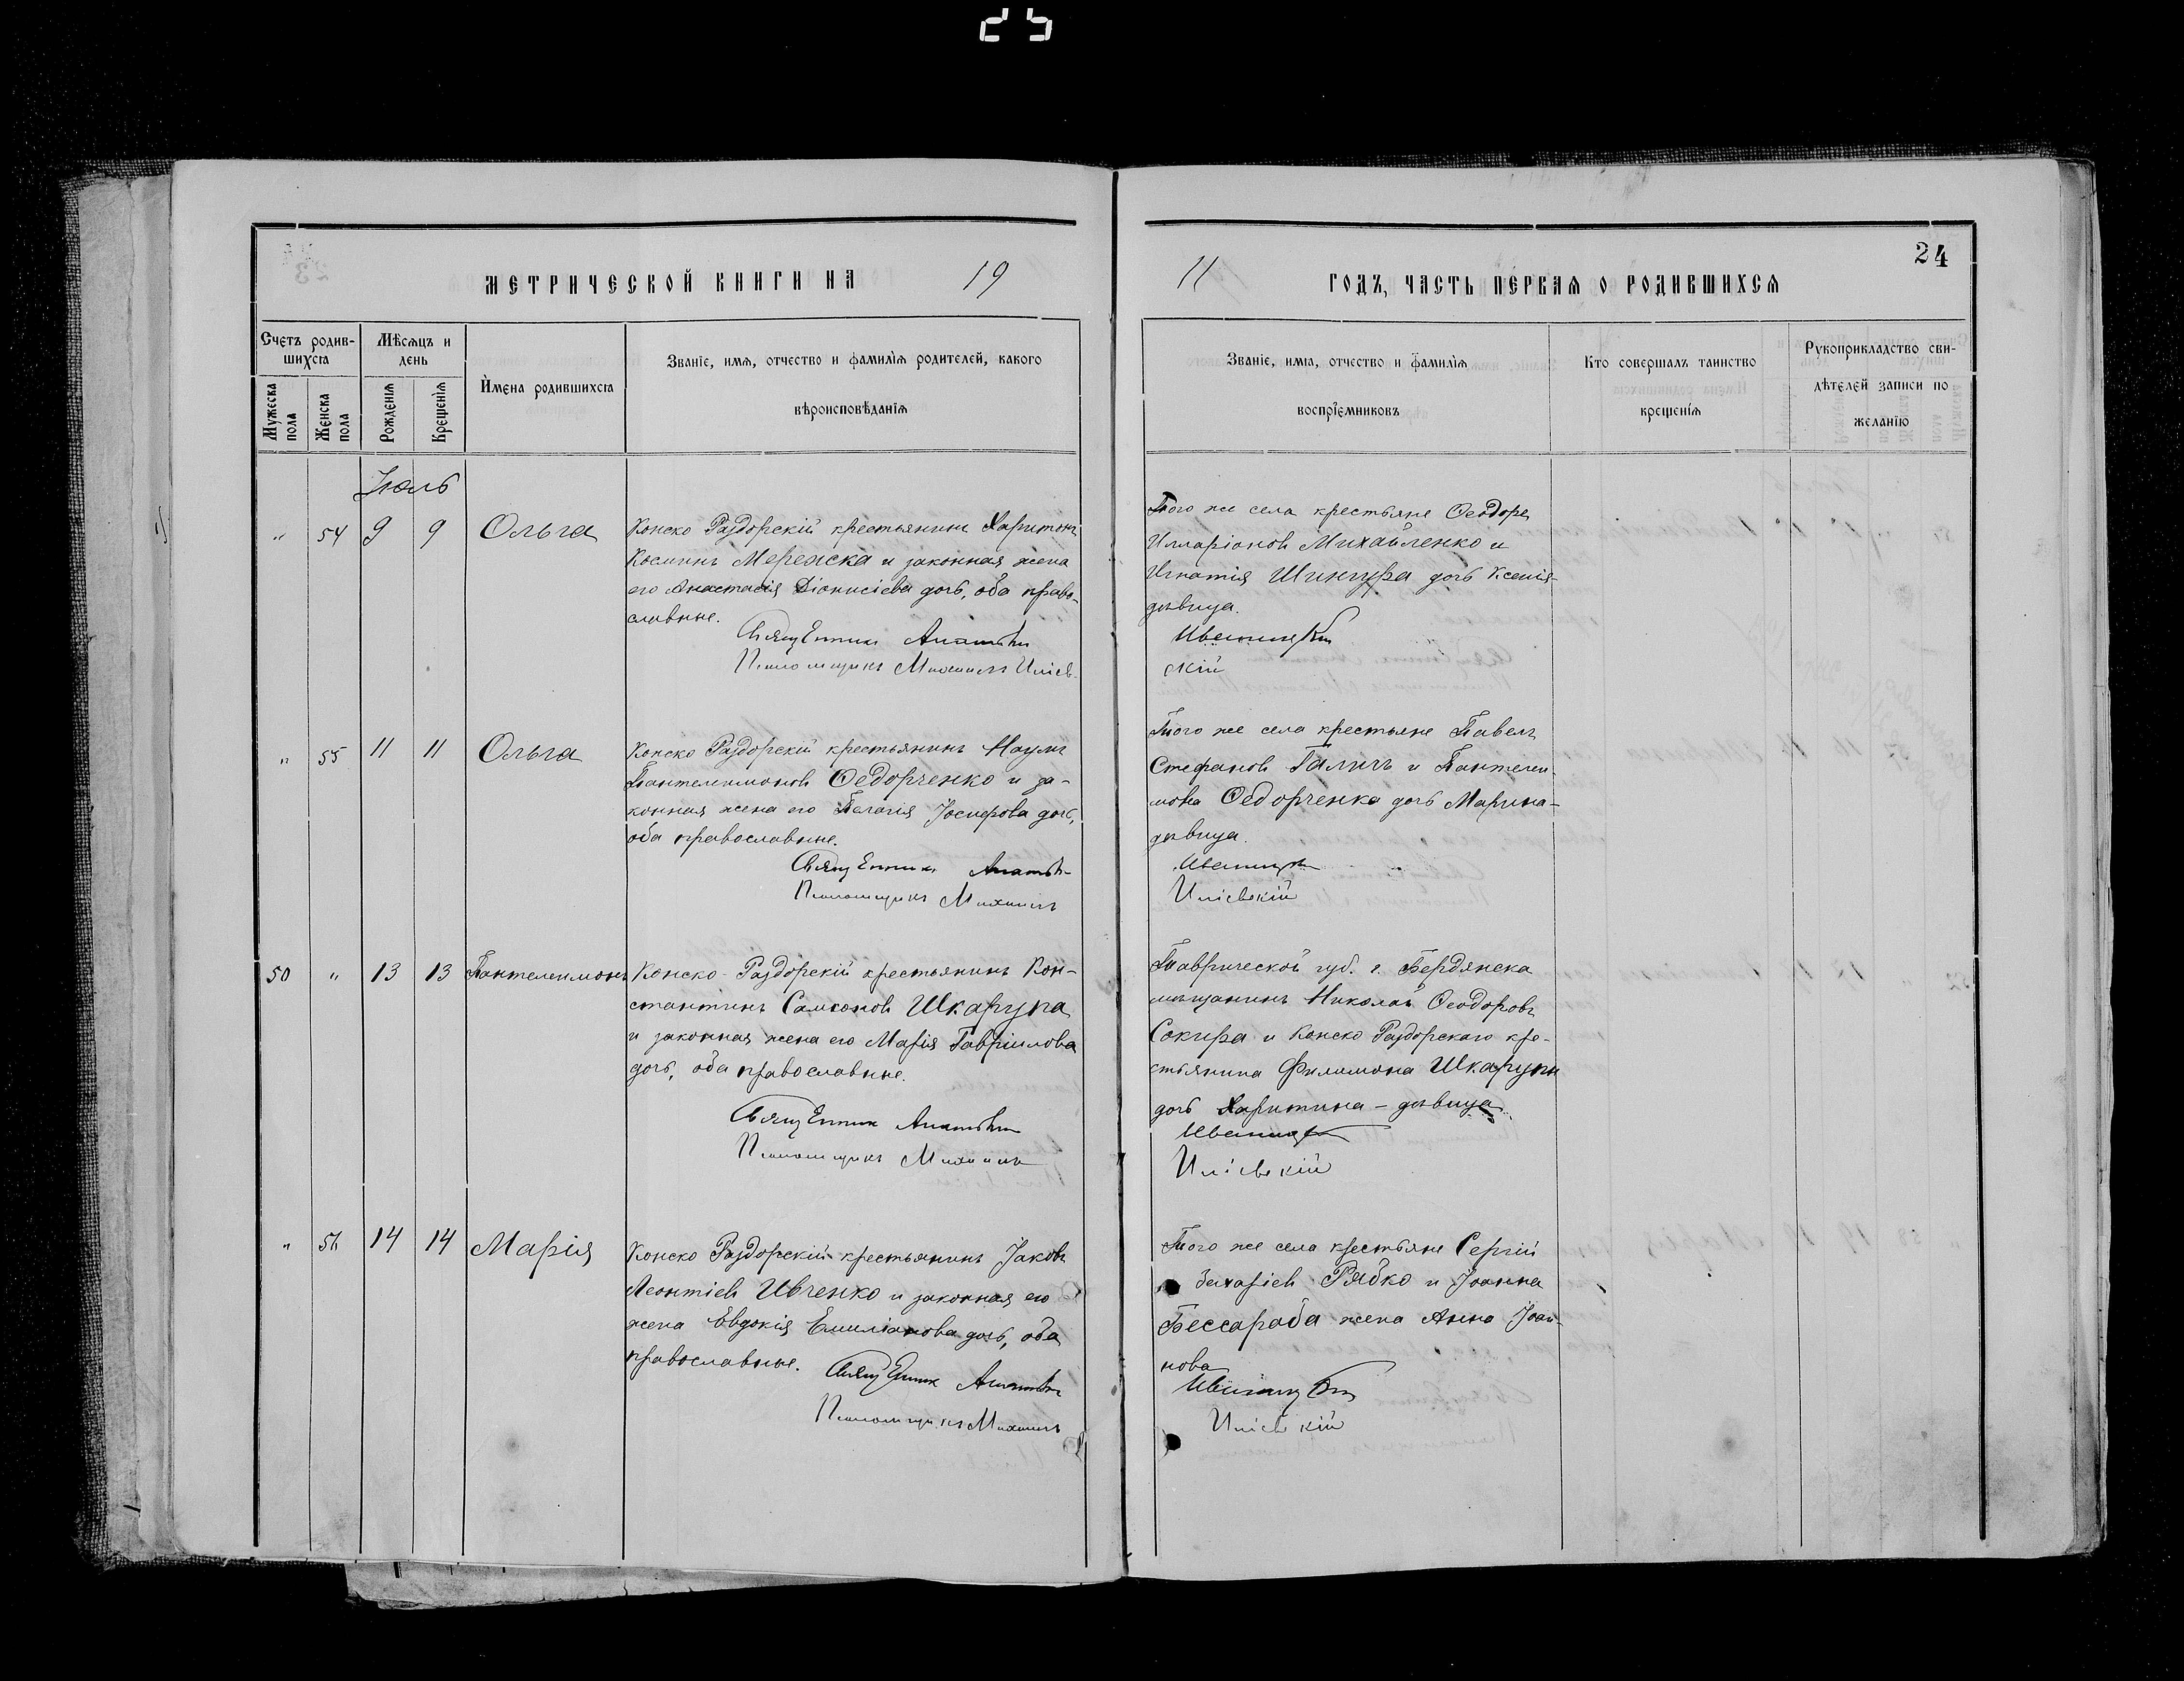 25
24
МЕТРИЧЕСКОЙ КНИГИ НА 19
11 ГОДЪ, ЧАСТЬ ПЕРВАЯ О РОДИВШИХСЯ
Счетъ родив-
шихся
Мужеска пола
Женска пола
Мѣсяцъ и
день
Рожденія
Крещенія
Имена родившихся
Званіе, имя, отчество и фамилія родителей, какого
вѣроисповѣданія
Званіе, имя, отчество и фамилія
воспріемниковъ
Кто совершалъ таинство
крещенія
Рукоприкладство сви-
дѣтелей записи по
желанію
Іюль
" 54 9 9 Ольга
Конско Раздорскій крестьянинъ Харитонъ
Косминъ Мережска и законная жена
его Анастасія Діонисіева дочь, оба право-
славные.
Псаломщикъ Михаилъ Иліев
Того же села крестьяне Ѳеодоръ
Илларіоновъ Михайленко и
Игнатія Шингура дочь Ксенія-
дѣвица.
скій
" 55 11 11 Ольга
Конско Раздорскій крестьянинъ Наумъ
Пантелеимоновъ Ѳедорченко и за-
конная жена его Пелагія Іосифова дочь,
оба православные.
Псаломщикъ Михаилъ
Того же села крестьяне Павелъ
Стефановъ Галичъ и Пантелеи-
мона Ѳедорченко дочь Марина-
дѣвица.
Иліевскій
50 " 13 13 Пантелеимонъ
Конско-Раздорскій крестьянинъ Кон-
стантинъ Самсоновъ Шкарупа
и законная жена его Марія Гавріилова
дочь, оба православные.
Псаломщикъ Михаилъ
Таврической губ. г. Бердянска
мѣщанинъ Николай Ѳеодоровъ
Сокира и Конско Раздорскаго кре-
стьянина Филимона Шкарупы
дочь Харитина - дѣвица.
Иліевскій
" 56 14 14 Марія
Конско Раздорскій крестьянинъ Іаковъ
Леонтіевъ Ивченко и законная его
жена Евдокія Емиліанова дочь, оба
православные.
Псаломщикъ Михаилъ
Того же села крестьяне Сергій
Захаріевъ Рябко и Іоанна
Бессараба жена Анна Іоан-
нова
Иліевскій